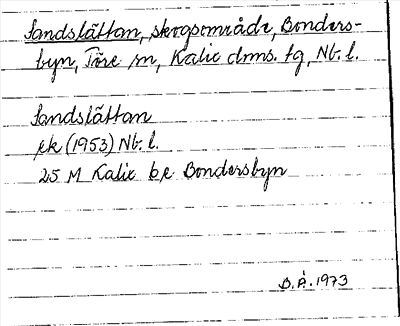 Sandslåttan, skogsområde, Bonders-
byn, Töre sn, Kalix dms. tg, Nb. l.
Sandslåttan
ek (1953) Nb. l.
25 M Kalix be Bondersbyn
B. Å. 1973